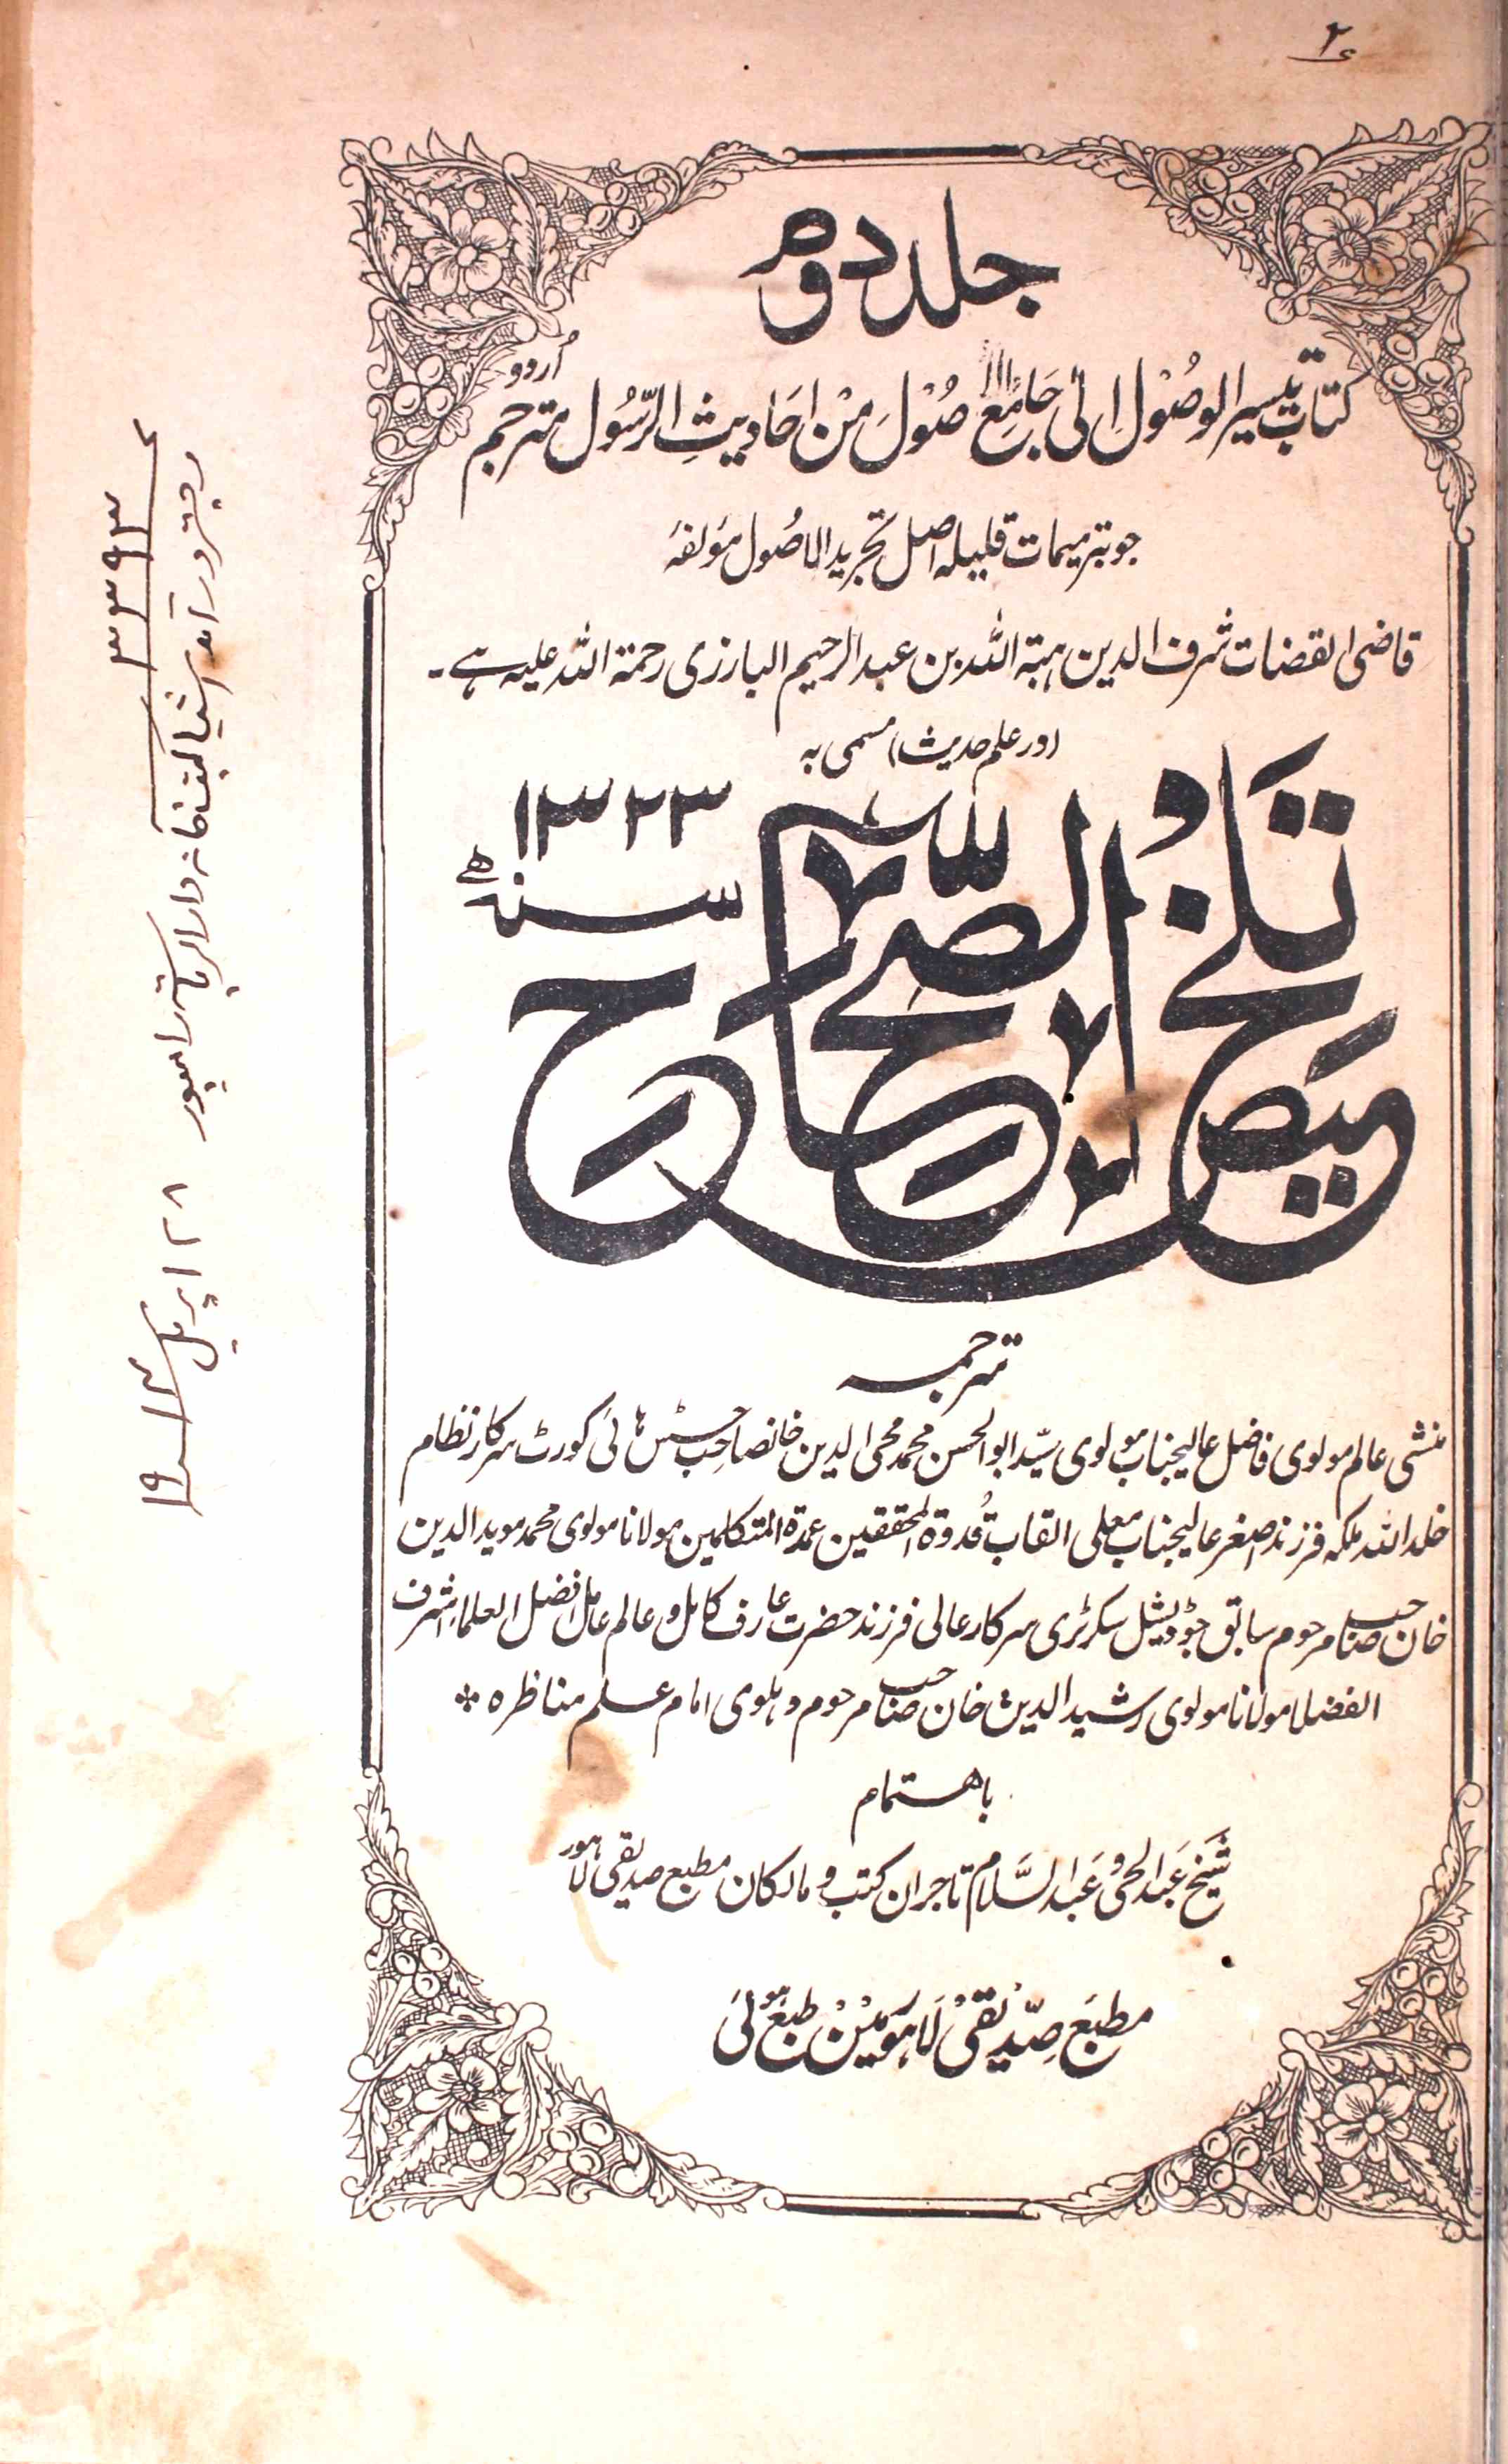 ۲
جلد دوم
کتاب تیسیر الوصُوْل اِلیٰ جَامِعِ الاصُوْل مِنْ اَحَادِیثِ الرّسُول مترجم اُردو
جو بترمیمات قلیلہ اصل تجرید الاصُول مؤلفہ
قاضی القضات شرف الدین ہبتہ اللہ بن عبد الرحیم البارزی رحمۃ اللہ علیہ ہے۔
(در علم حدیث) مسمی بہ
تلخیص الصحاح
۱۳۲۳
سنہ ھ
ترجمہ
منشی عالم مولوی فاضل عالیجناب مولوی سیّد ابوالحسن محمد محی الدین خانصاحب جسٹس ہائی کورٹ سرکار نظام
خلد اللہ ملکہ فرزند اصغر عالیجناب معلی القاب قُدوۃ المحققین عمدۃ المتکلمین مولانا مولوی محمد موید الدین
خان صاحب مرحوم سابق جوڈیشل سکرٹری سرکار عالی فرزند حضرت عارف کامل و عالم عامل افضل العلماء اشرف
الفضلا مولانا مولوی رشید الدین خان صاحب مرحوم دہلوی امام علم مناظرہ *
باھتمام
شَیخ عَبد الحیُ وْ عَبد السَّلام تاجران کتب و مالکان مطبع صدیقی لاہور
مطبَع صِدّیقیْ لَاہَو میْں طبعْ ہوئی
۳۳۹۳
رجسٹر درآمد اشیا کتبخانہ دار الریاست رامپور
۲۸ اپریل
۱۹